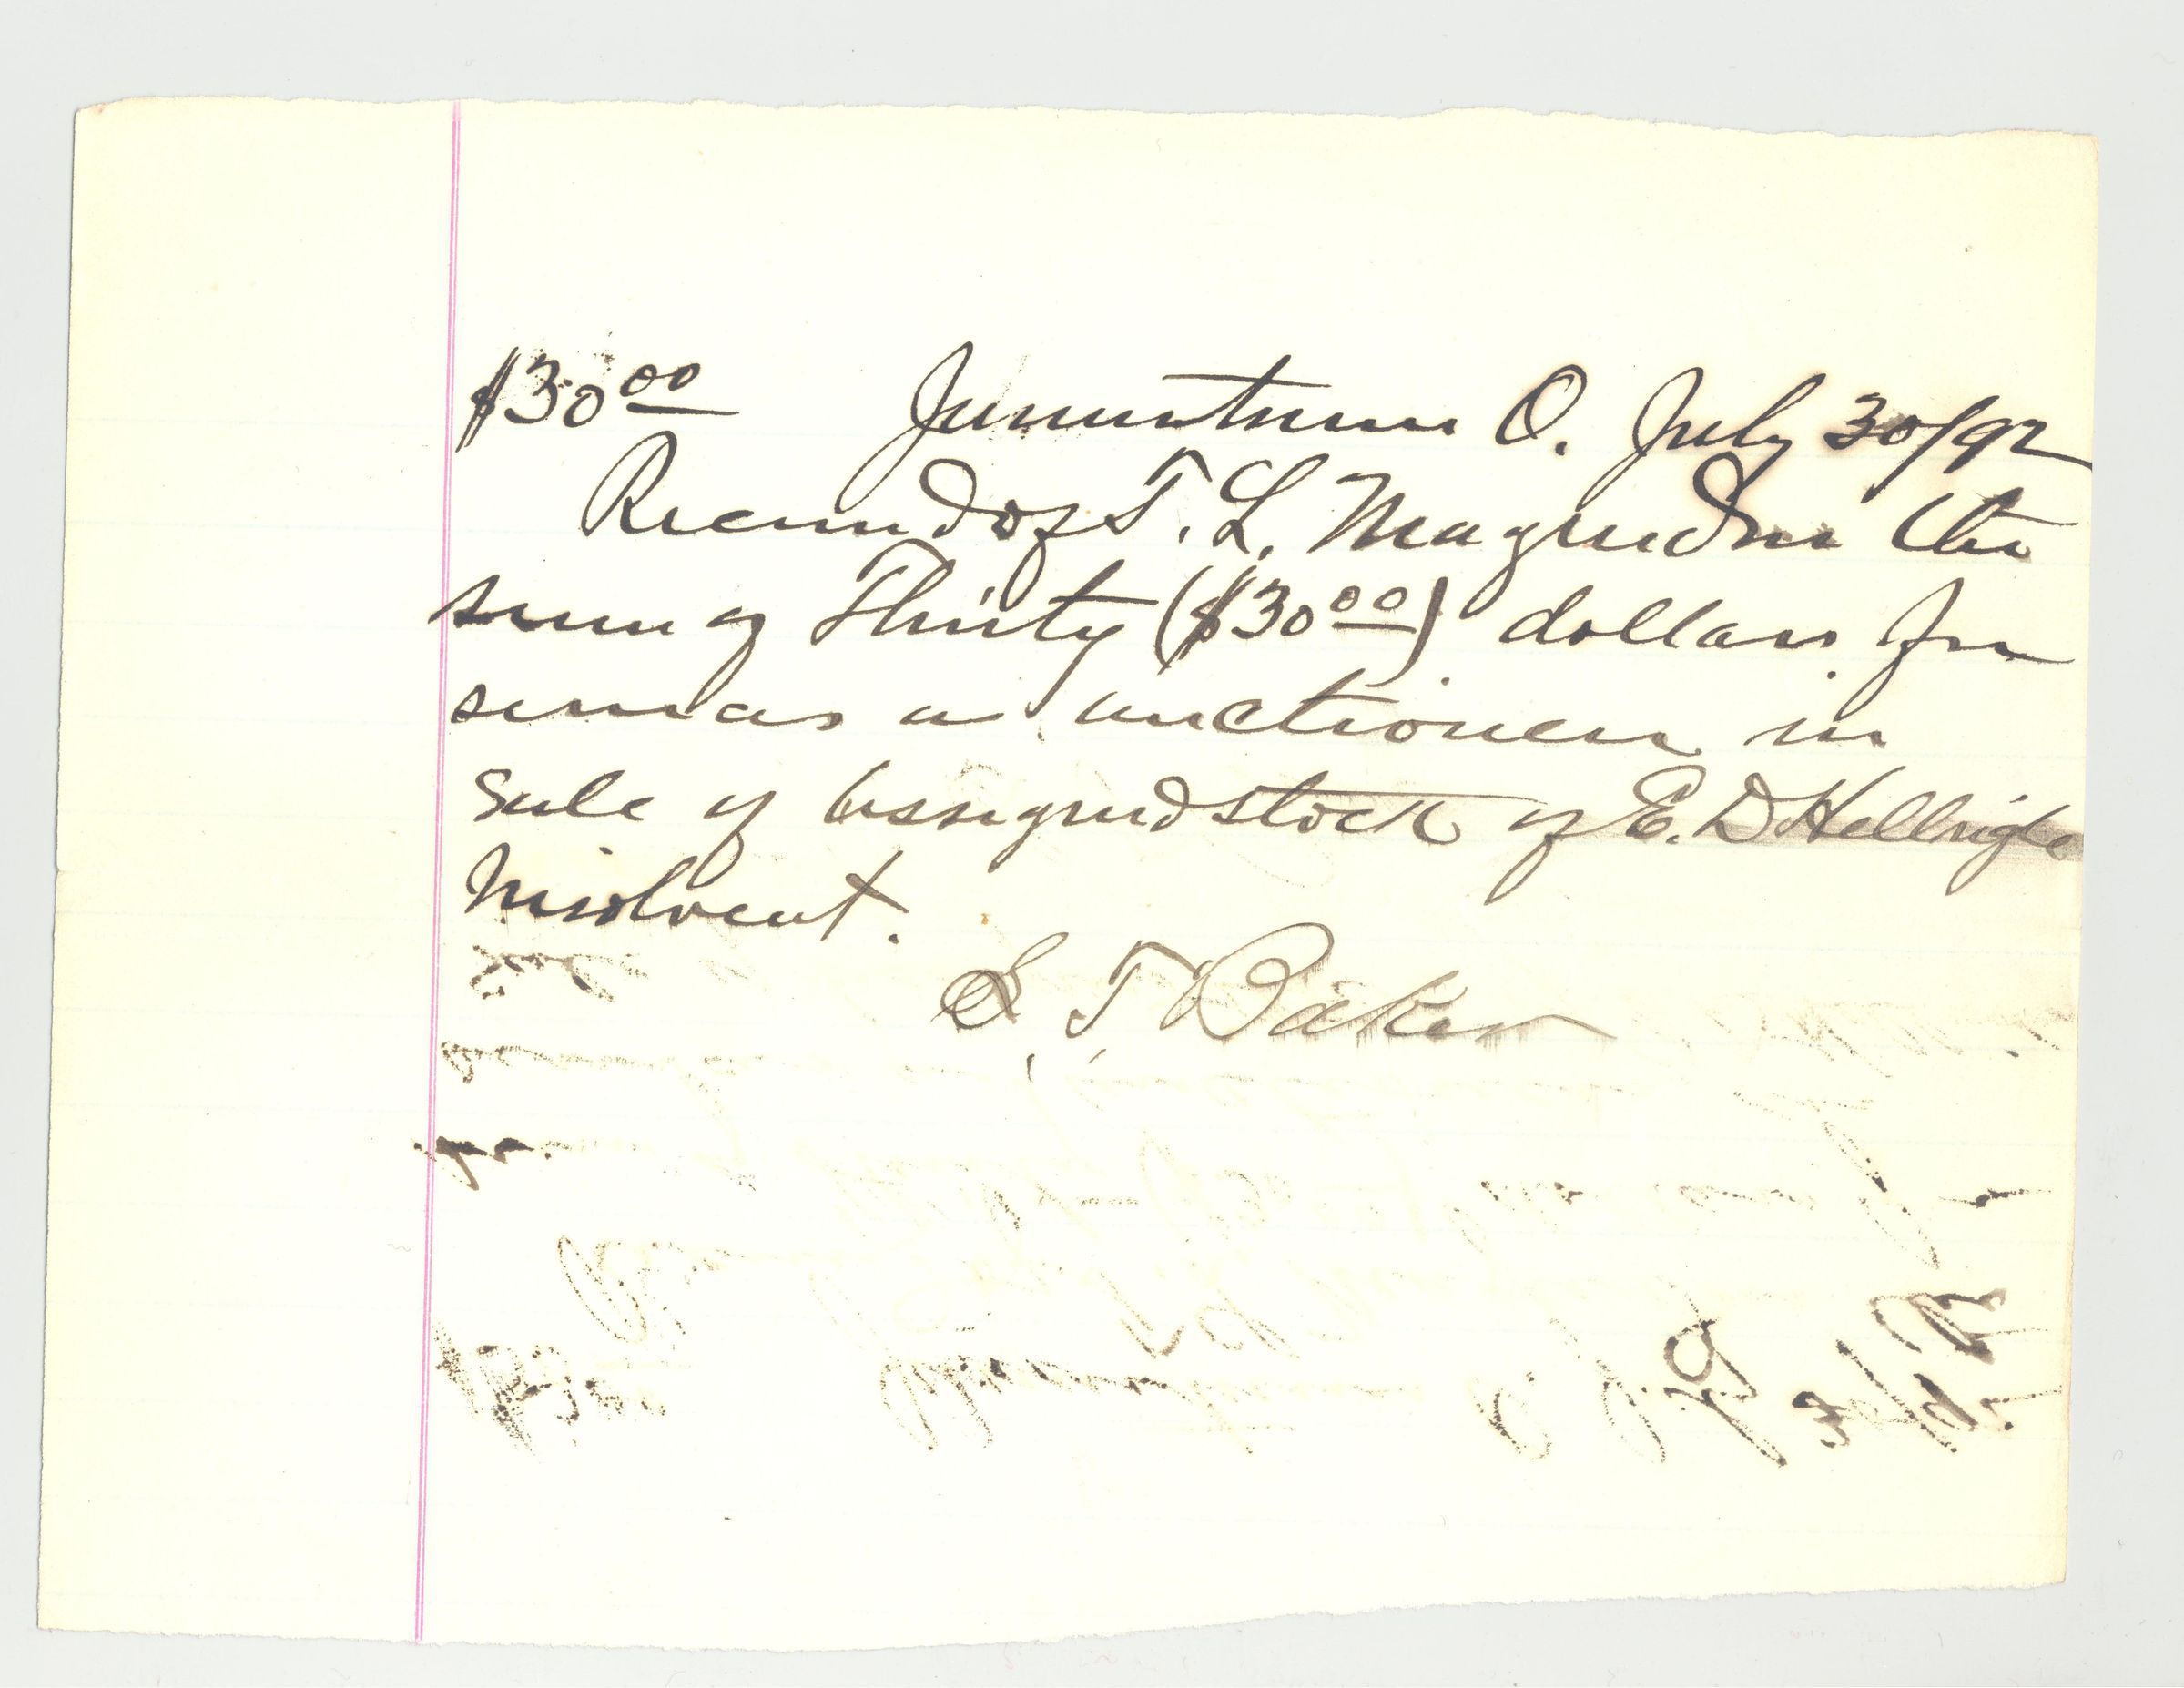 $30.00 Jamestown O. July 30/92
Received of T. L. Magruder the
sum of Thirty ($30.00) dollars for
services as auctioneer in
sale of assigned stock of E. D Hellrigle
Insolvent.
S. T. Baker